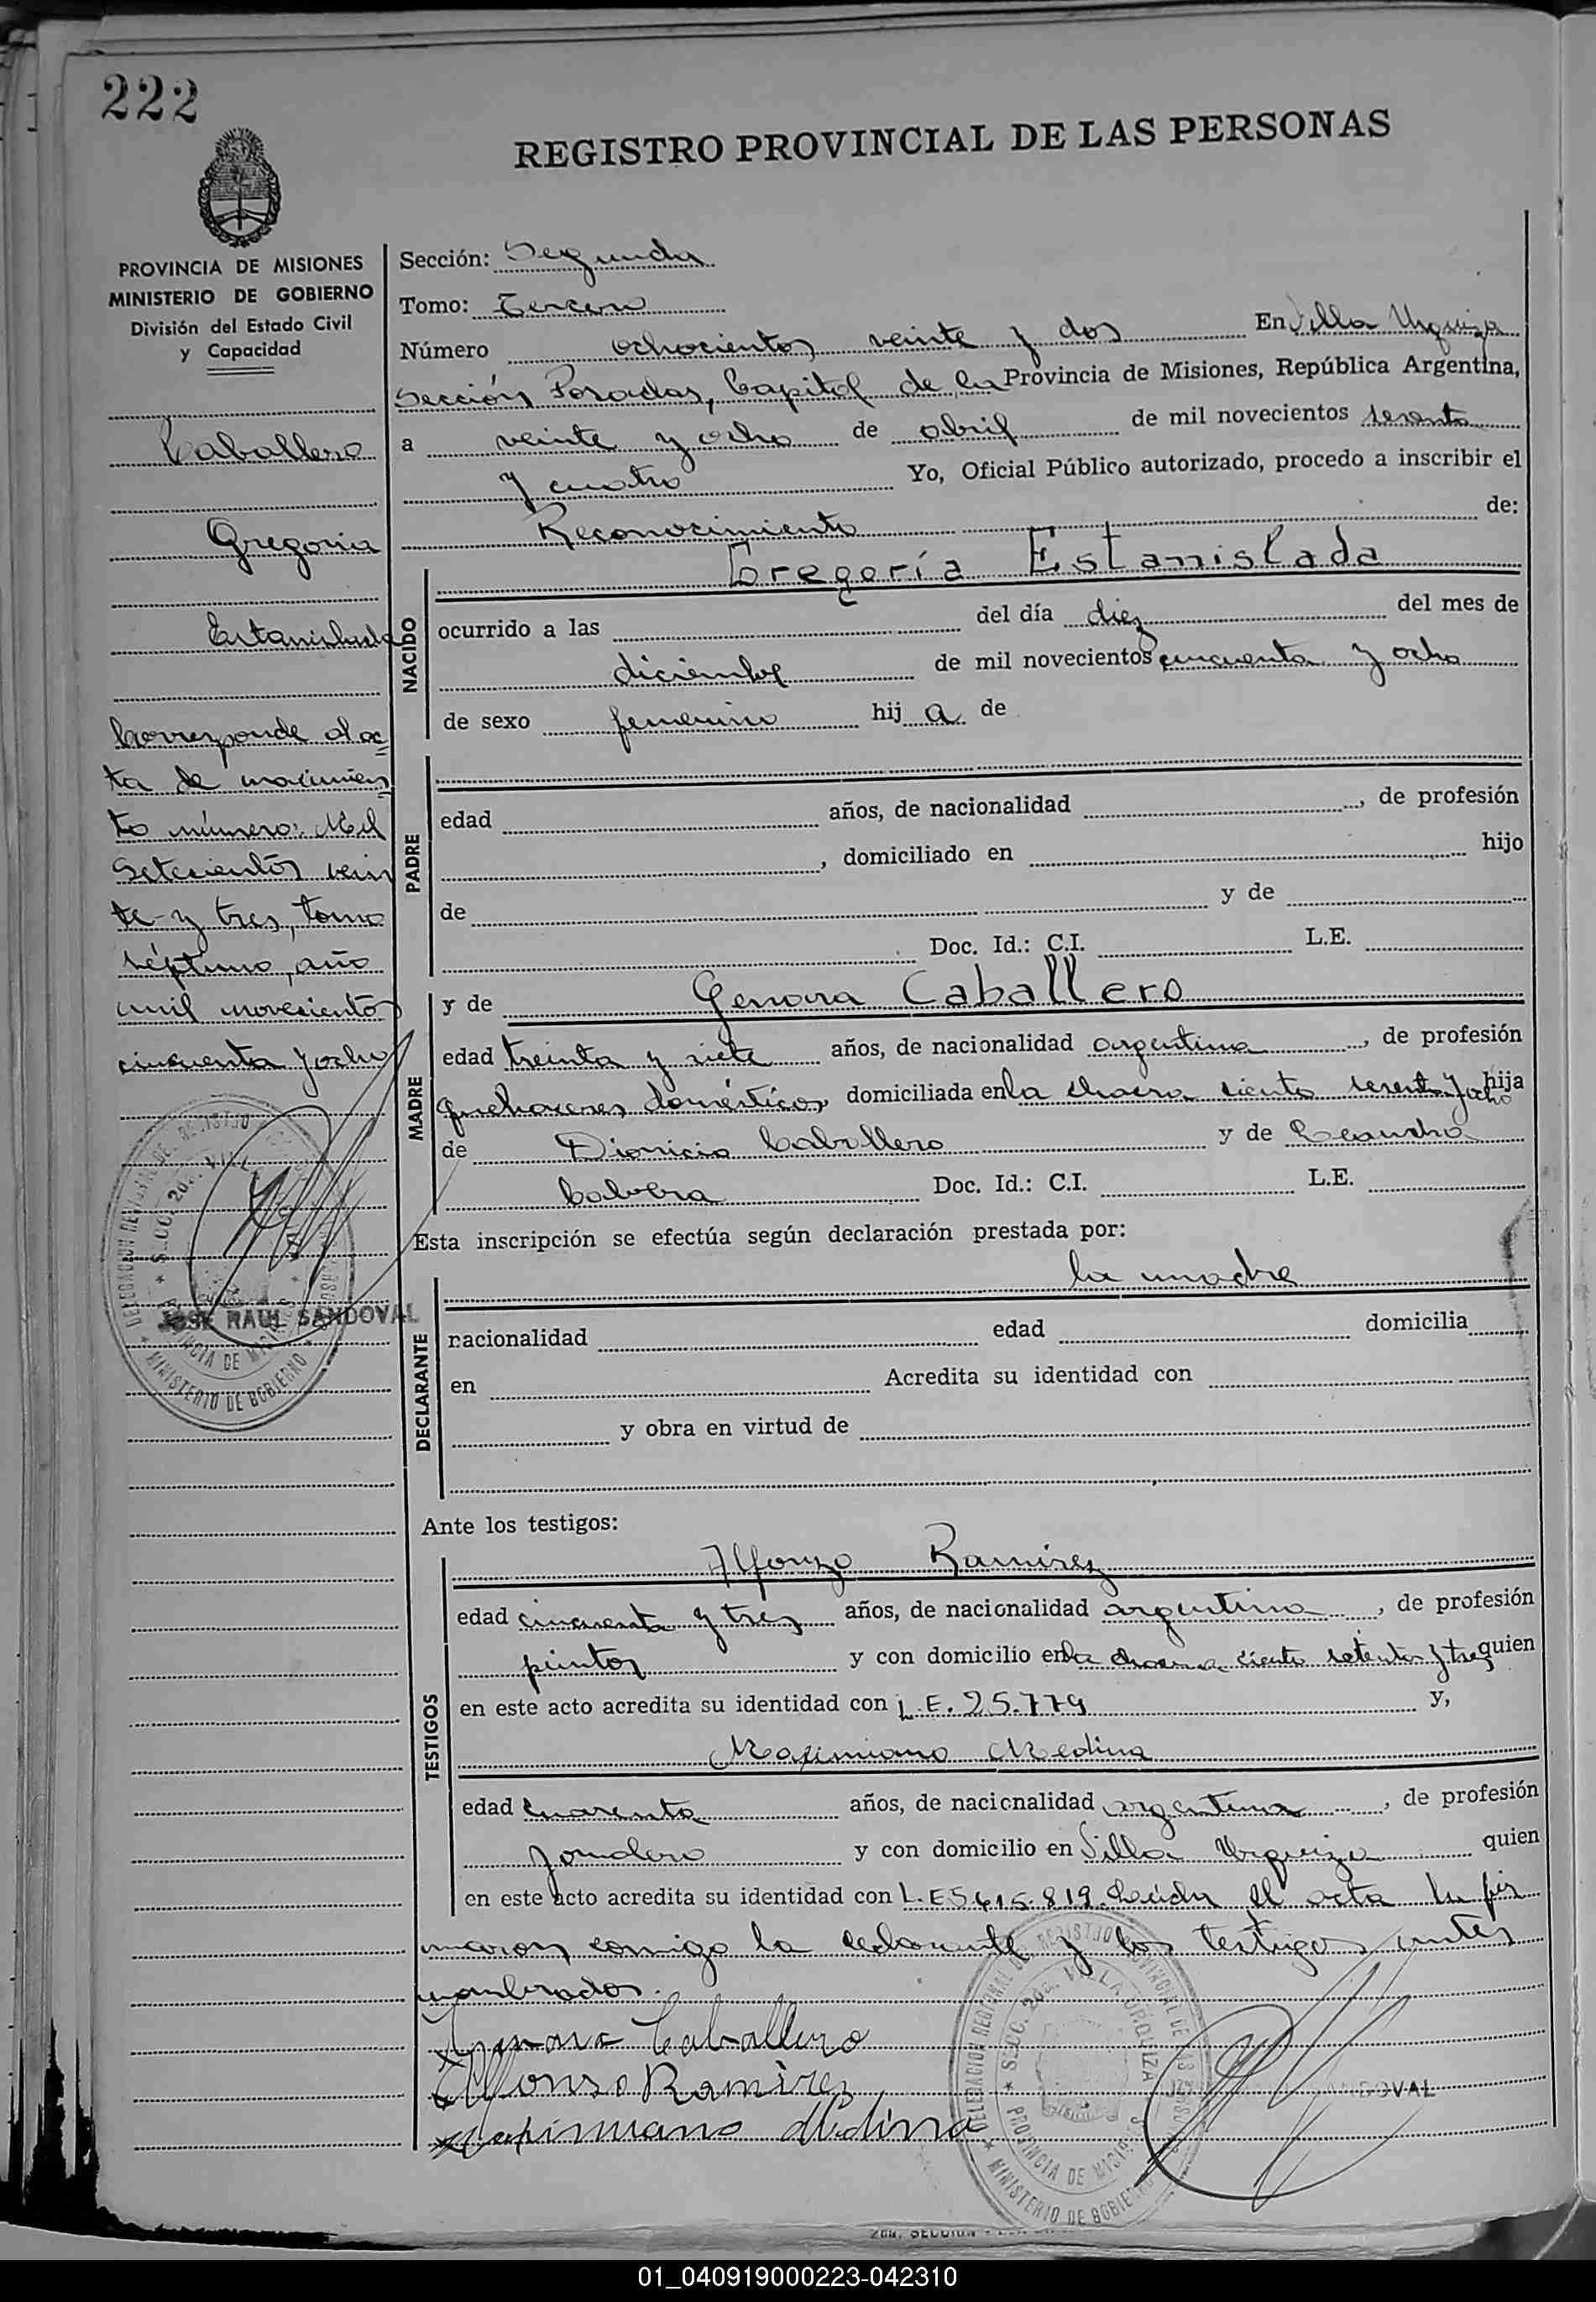 222
REGISTRO PROVINCIAL DE LAS PERSONAS
PROVINCIA DE MISIONES
MINISTERIO DE GOBIERNO
División del Estado Civil
y Capacidad
Caballero
Gregoria
Estanislada
Corresponde al ac
ta de nacimien
to número: Mil
Setecientos vein
te y tres, tomo
séptimo, año
mil novecientos
cincuenta y ocho
JOSE RAUL SANDOVAL
Sección: Segunda
Tomo: Tercero
Número ochocientos veinte y dos En Villa Urquiza
Sección Posadas, Capital de la Provincia de Misiones, República Argentina,
a veinte y ocho de abril de mil novecientos sesenta
y cuatro Yo, Oficial Público autorizado, procedo a inscribir el
Reconocimiento de:
NACIDO
Gregoría Estanislada
ocurrido a las del día diez del mes de
diciembre de mil novecientos cincuenta y ocho
de sexo femenino hij a de
PADRE
edad años, de nacionalidad , de profesión
, domiciliado en hijo
de y de
Doc. Id.: C.I. L.E.
MADRE
y de Genara Caballero
edad treinta y siete años, de nacionalidad argentina , de profesión
quehaceres domésticos domiciliada en la chacra ciento sesenta y ocho hija
de Dionicio Caballero y de Leandra
Cabrera Doc. Id.: C.I. L.E.
Esta inscripción se efectúa según declaración prestada por:
DECLARANTE
la madre
nacionalidad edad domicilia
en Acredita su identidad con
y obra en virtud de
Ante los testigos:
TESTIGOS
Alfonzo Ramirez
edad cincuenta y tres años, de nacionalidad argentina , de profesión
pintor y con domicilio en la chacra ciento setenta y tres quien
en este acto acredita su identidad con L.E. 25.779 y,
Maximiano Medina
edad cuarenta años, de nacionalidad argentina , de profesión
Jornalero y con domicilio en Villa Urquiza quien
en este acto acredita su identidad con L.E 5.615.819. Leída el acta la fir
maron conmigo la declarante y los testigos antes
nombrados.
Genara Caballero
Alfonso Ramirez
Maximiano Medina
DELEGACION REGIONAL DEL REGISTRO PROVINCIAL DE LAS PERSONAS
SECC. 2da. VILLA URQUIZA
PROVINCIA DE MISIONES
MINISTERIO DE GOBIERNO
SANDOVAL
01_040919000223-042310